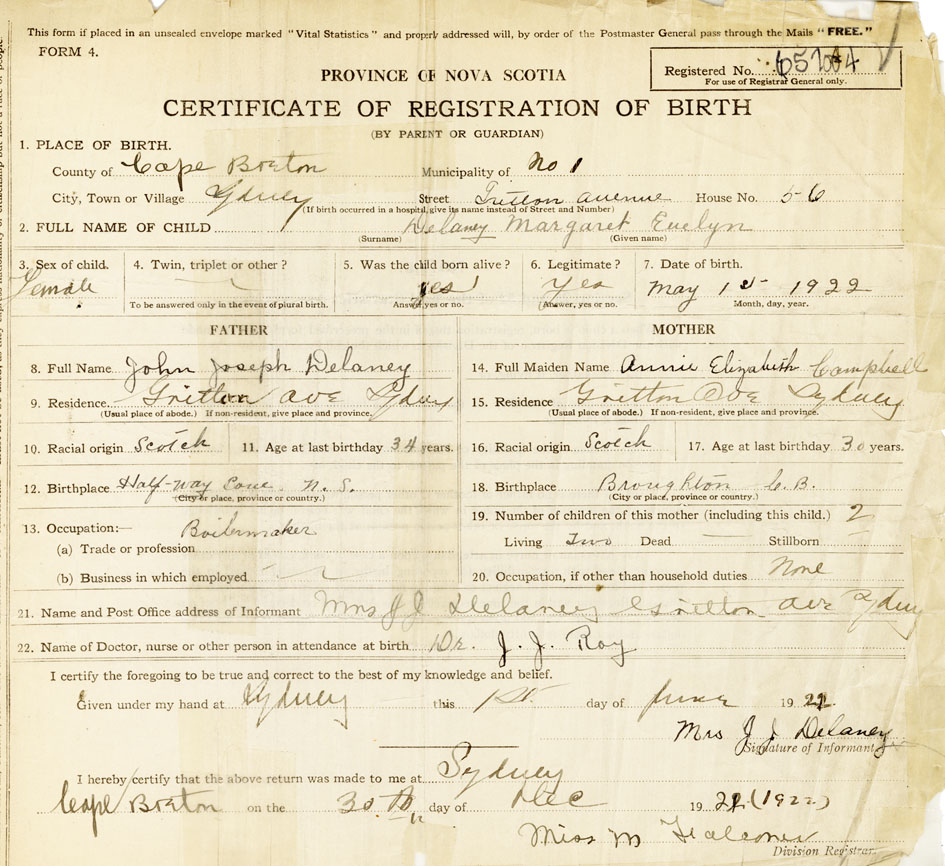 This form if placed in an unsealed envelope marked "Vital Statistics" and properly addressed will, by order of the Postmaster General pass through the Mails "FREE."
FORM 4.
Registered No.
For use of Registrar General only.
PROVINCE OF NOVA SCOTIA
CERTIFICATE OF REGISTRATION OF BIRTH
(BY PARENT OR GUARDIAN)
1. PLACE OF BIRTH.
County of Cape Breton Municipality of No 1
City, Town or Village Sydney Street Avenue House No. 56
(If birth occurred in a hospital, give its name instead of Street and Number)
2. FULL NAME OF CHILD Delaney Margaret Evelyn
(Surname) (Given name)
3. Sex of child. 4. Twin, triplet or other? 5. Was the child born alive? 6. Legitimate? 7. Date of birth.
Female yes Yes May 1st 1922
To be answered only in the event of plural birth. Answer, yes or no. (Answer, yes or no. Month, day, year.
FATHER
8. Full Name John Joseph Delaney
9. Residence Gritton Ave Sydney
(Usual place of abode.) If non-resident, give place and province.
10. Racial origin Scotch 11. Age at last birthday 34 years.
12. Birthplace Half-way N. S.
(City or place, province or country.)
13. Occupation:— Boilermaker
(a) Trade or profession
(b) Business in which employed
MOTHER
14. Full Maiden Name Annie Elizabeth Campbell
15. Residence Gritton Ave Sydney
(Usual place of abode.) If non-resident, give place and province.
16. Racial origin Scotch 17. Age at last birthday 30 years.
18. Birthplace Broughton C. B.
(City or place, province or country.)
19. Number of children of this mother (including this child.) 2
Living Two Dead — Stillborn —
20. Occupation, if other than household duties None
21. Name and Post Office address of Informant Mrs J J Delaney Gritton Ave Sydney
22. Name of Doctor, nurse or other person in attendance at birth Dr. J. J. Roy
I certify the foregoing to be true and correct to the best of my knowledge and belief.
Given under my hand at Sydney this 1st day of June 19
Mrs J J Delaney
Signature of Informant.
I hereby certify that the above return was made to me at Sydney
Cape Breton on the 30th day of Dec 19 (1922)
Miss M Falconer
Division Registrar.